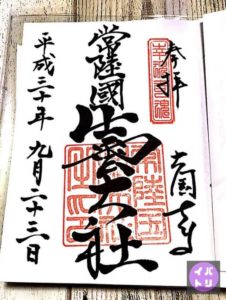 奉拝
幸魂奇魂
常陸國
出雲大社
平成三十年九月二十三日
イバ
トリ